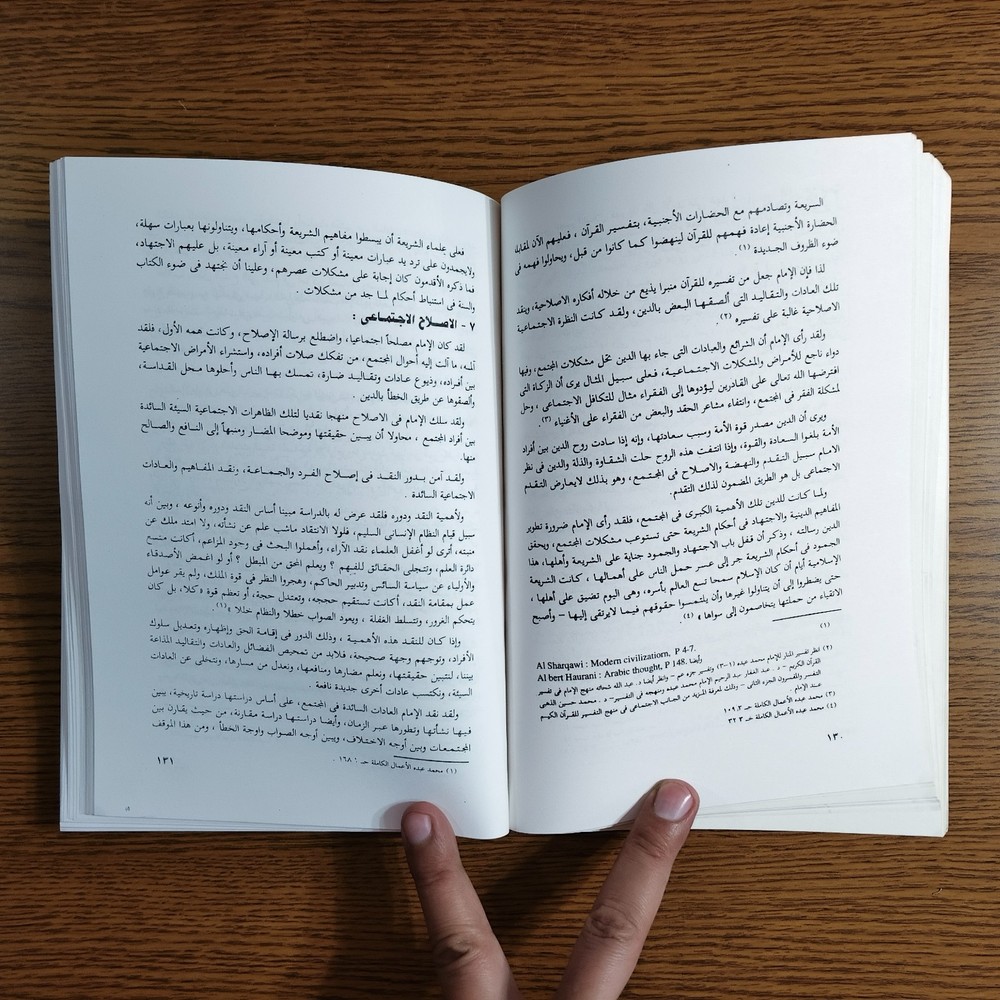 السريعة وتصادمهم مع الحضارات الأجنبية، بتفسير القرآن، فعليهم الآن لمقابلة
الحضارة الأجنبية إعادة فهمهم للقرآن لينهضوا كما كانوا من قبل، ويحاولوا فهمه فى
ضوء الظروف الجديدة (١).
لذا فإن الإمام جعل من تفسيره للقرآن منبرا يذيع من خلاله أفكاره الاصلاحية، وينقد
تلك العادات والتقاليد التى ألصقها البعض بالدين، ولقد كانت النظرة الاجتماعية
الاصلاحية غالبة على تفسيره (٢).
ولقد رأى الإمام أن الشرائع والعبادات التى جاء بها الدين تحمل مشكلات المجتمع، وفيها
دواء ناجع للأمراض والمشكلات الاجتماعية، فعلى سبيل المثال يرى أن الزكاة التى
افترضها الله تعالى على القادرين ليؤدوها إلى الفقراء مثال للتكافل الاجتماعى، وحل
لمشكلة الفقر فى المجتمع، وانتفاء مشاعر الحقد والبغض من الفقراء على الأغنياء (٣).
ويرى أن الدين مصدر قوة الأمة وسبب سعادتها، وإنه إذا سادت روح الدين بين أفراد
الأمة بلغوا السعادة والقوة، وإذا انتفت هذه الروح حلت الشقاوة والذلة والدين فى نظر
الامام سبيل التقدم والنهضة والاصلاح فى المجتمع، وهو بذلك لايعارض التقدم
الاجتماعى بل هو الطريق المضمون لذلك التقدم.
ولما كانت للدين تلك الأهمية الكبرى فى المجتمع، فلقد رأى الإمام ضرورة تطوير
المفاهيم الدينية والاجتهاد فى أحكام الشريعة حتى تستوعب مشكلات المجتمع، ويحقق
الدين رسالته، وذكر أن قفل باب الاجتهاد والجمود جناية على الشريعة وأهلها، هذا
الجمود فى أحكام الشريعة جر إلى عسر حمل الناس على أهمالها، كانت الشريعة
الإسلامية أيام أن كان الإسلام سمحا تسع العالم بأسره، وهى اليوم تضيق على أهلها،
حتى يضطروا إلى أن يتناولوا غيرها وأن يلتمسوا حقوقهم فيما لايرتقى إليها – وأصبح
الاتقياء من حملتها يتخاصمون إلى سواها » (٤).
(١)
Al Sharqawi : Modern civilizatiorn, P 4-7.
Al bert Haurani : Arabic thought, P 148. وأيضا
(٢) انظر تفسير المنار للإمام محمد عبده (١-٣) وتفسير جزء عم – وانظر أيضا د. عبد الله شحاته منهج الإمام فى تفسير
القرآن الكريم – د. عبد الغفار عبد الرحيم الإمام محمد عبده ومنهجه فى التفسير – د. محمد حسين الذهبى
التفسير والمفسرون الجزء الثانى – وذلك لمعرفة المزيد من الجانب الاجتماعى فى منهج التفسير للقرآن الكريم
عند الإمام.
(٣) محمد عبده الأعمال الكاملة حـ ١٠٩،٣
(٤) محمد عبده الأعمال الكاملة حـ ٣٢٣
١٣٠
فعلى علماء الشريعة أن يبسطوا مفاهيم الشريعة وأحكامها، ويتناولونها بعبارات سهلة،
ولايجمدون على ترديد عبارات معينة أو كتب معينة أو آراء معينة، بل عليهم الاجتهاد،
فما ذكره الأقدمون كان إجابة على مشكلات عصرهم، وعلينا أن نجتهد فى ضوء الكتاب
والسنة فى استنباط أحكام لما جد من مشكلات.
٧ - الاصلاح الاجتماعى :
لقد كان الإمام مصلحاً اجتماعيا، واضطلع برسالة الإصلاح، وكانت همه الأول، فلقد
آلمه، ما آلت إليه أحوال المجتمع، من تفكك صلات أفراده، واستشراء الأمراض الاجتماعية
بين أفراده، وذيوع عادات وتقاليد ضارة، تمسك بها الناس وأحلوها محل القداسة،
وألصقوها عن طريق الخطأ بالدين.
ولقد سلك الإمام فى الاصلاح منهجا نقديا لتلك الظاهرات الاجتماعية السيئة السائدة
بين أفراد المجتمع، محاولا أن يبين حقيقتها وموضحا المضار ومنبهاً إلى النافع والصالح
منها.
ولقد آمن بدور النقد فى إصلاح الفرد والجماعة، ونقد المفاهيم والعادات
الاجتماعية السائدة.
ولأهمية النقد ودوره فلقد عرض له بالدراسة مبينا أساس النقد ودوره وأنوعه، وبين أنه
سبيل قيام النظام الإنسانى السليم، فلولا الانتقاد ماشب علم عن نشأته، ولا امتد ملك عن
منبته، أترى لو أغفل العلماء نقد الآراء، وأهملوا البحث فى وجود المزاعم، أكانت متسع
دائرة العلم، وتتجلى الحقائق للفهم ؟ ويعلم المحق من المبطل ؟ أو لو اغمض الأصدقاء
والأولياء عن سياسة السائس وتدبير الحاكم، وهجروا النظر فى قوة الملك، ولم يقر عوامل
عمل بمقامة النقد، أكانت تستقيم حججه، وتعتدل حجة، أو تعظم قوة «كلا، بل كان
يتحكم الغرور، وتتسلط الغفلة، ويعود الصواب خطلا والنظام خللا »(١).
وإذا كان للنقد هذه الأهمية، وذلك الدور فى إقامة الحق وإظهاره وتعديل سلوك
الأفراد، وتوجهم وجهة صحيحة، فلابد من تمحيص الفضائل والعادات والتقاليد المذاعة
بيننا، لنتبين حقيقتها، ونعلم مضارها ومنافعها، ونعدل من مسارها، ونتخلى عن العادات
السيئة، ونكتسب عادات أخرى جديدة نافعة.
ولقد نقد الإمام العادات السائدة فى المجتمع، على أساس دراستها دراسة تاريخية، يبين
فيها نشأتها وتطورها عبر الزمان، وأيضا دراستها دراسة مقارنة، من حيث يقارن بين
المجتمعات وبين أوجه الاختلاف، ويبين أوجه الصواب واوجة الخطأ، ومن هذا الموقف
(١) محمد عبده الأعمال الكاملة حـ ١٦٨،
١٣١